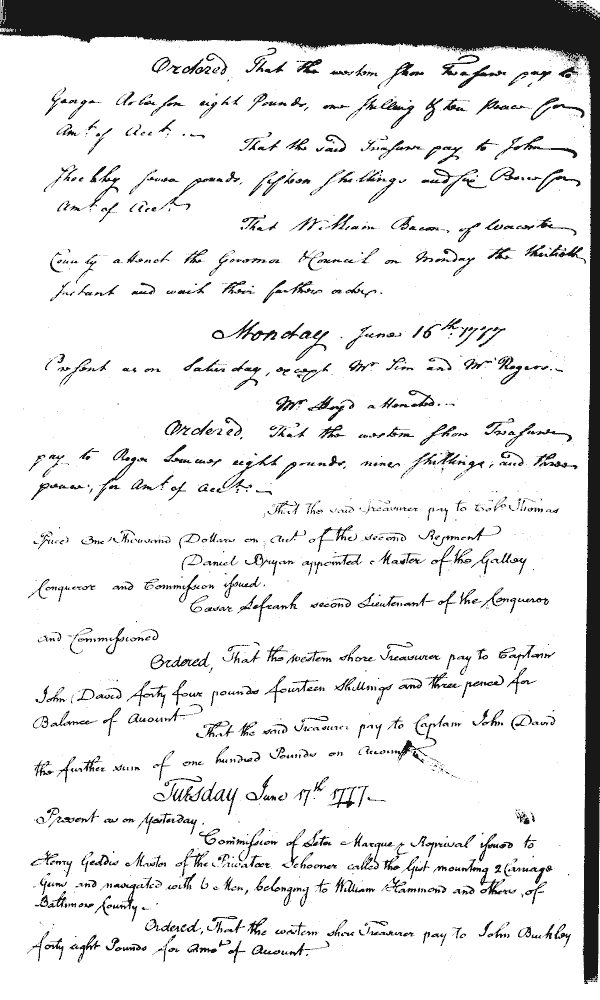 Ordered, That the western Shore Treasurer pay to
George eight Pounds, one shilling & ten Pence for
Amt. of Acct.
That the said Treasurer pay to John
Shockley seven pounds, fifteen Shillings and six Pence for
Amt. of Acct.
That William Bacon of Worcester
County attend the Governor & Council on Monday the thirtieth
Instant and wait their further orders.
Monday June 16th. 1777
Present as on Saturday, except Mr. Sim and Mr. Rogers.
Mr. Lloyd attended.
Ordered, That the western Shore Treasurer
pay to Roger eight pounds, nine shillings, and three
pence, for Amt. of Acct.
That the said Treasurer pay to Colo. Thomas
Price One Thousand Dollars on acct. of the second Regiment
Daniel Bryan appointed Master of the Galley
Conqueror and Commission issued.
Cæsar Lefrank second Lieutenant of the Conqueror
and Commissioned
Ordered, That the western shore Treasurer pay to Captain
John David forty four pounds fourteen Shillings and three pence for
Balance of Account
That the said Treasurer pay to Captain John David
the further sum of one hundred Pounds on Account
Tuesday June 17th 1777.
Present as on Yesterday.
Commission of Letter Marque & Reprival issued to
Henry Geddis Master of the Privateer Schooner called the Gist mounting 2 Carriage
Guns and navigated with 6 Men, belonging to William Hammond and others, of
Baltimore County.
Ordered, That the western shore Treasurer pay to John Buckley
forty eight Pounds for Amot. of Account.